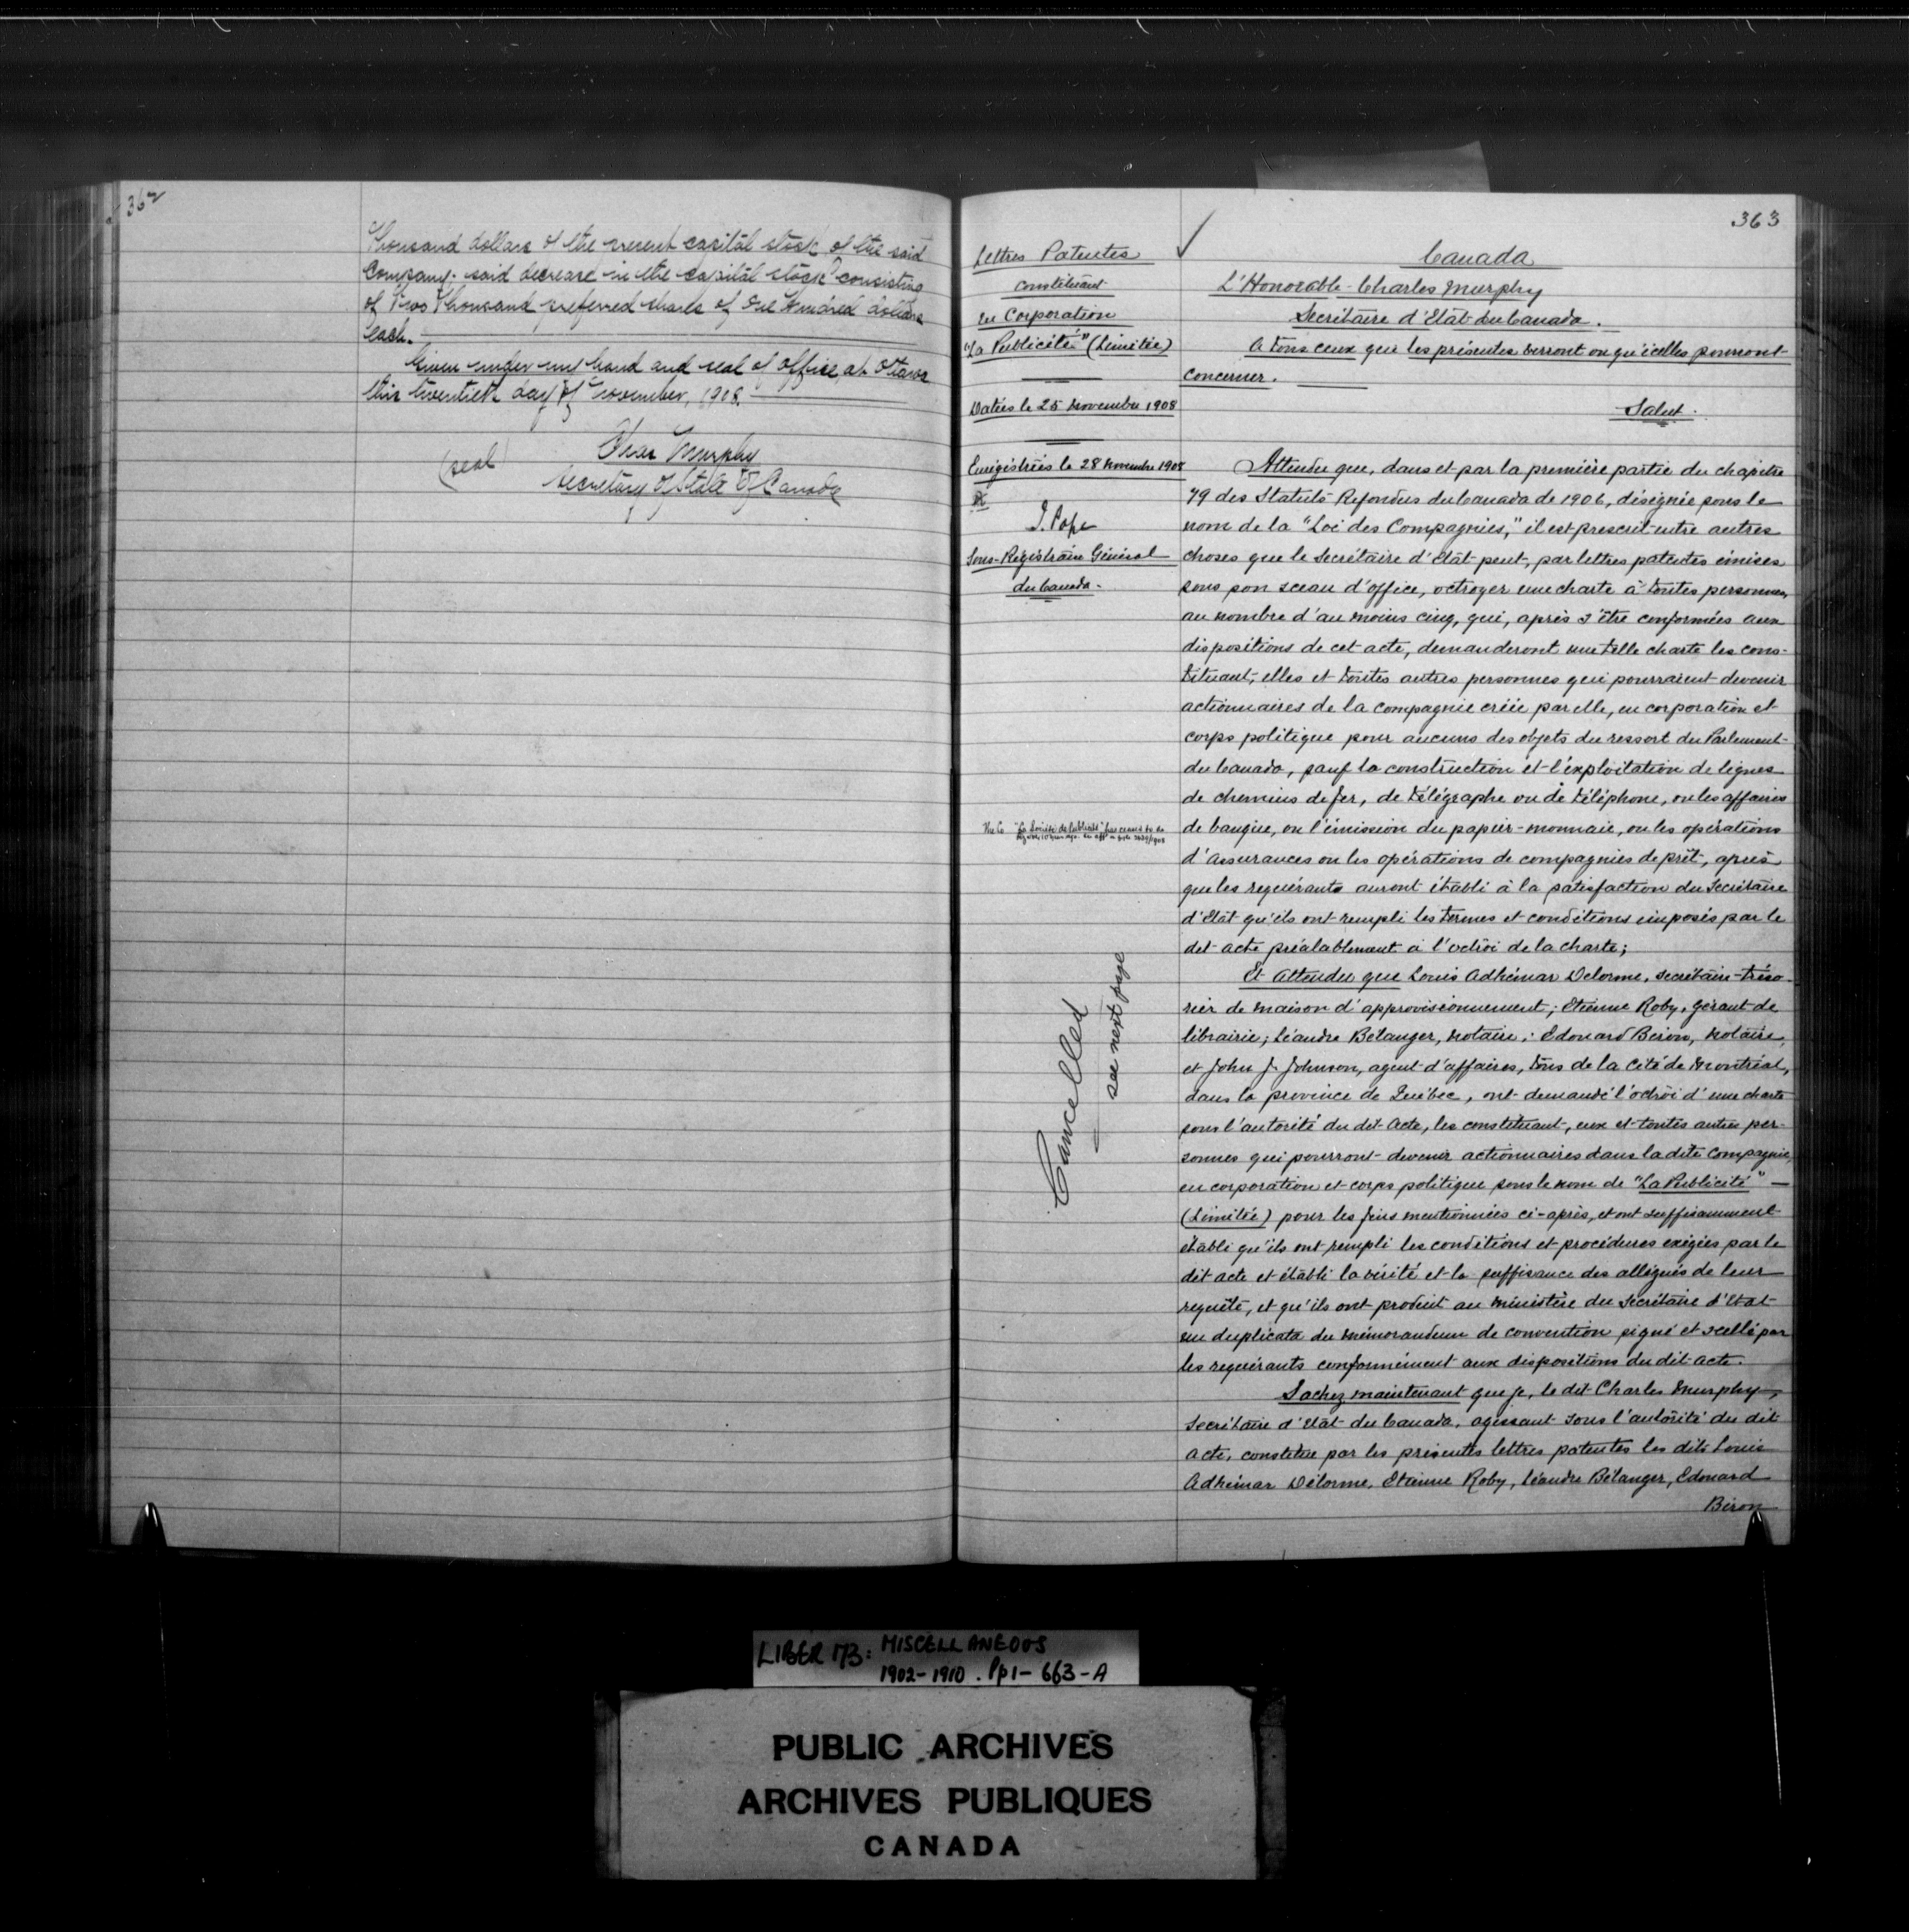 362
Thousand dollars of the present capital stock of the said
Company. said decrease in the capital stock consisting
of Two Thousand preferred shares of One Hundred dollars
each.
Given under my hand and seal of office, at Ottawa
this twentieth day of November, 1908.
(seal) Chas Murphy
Secretary of State of Canada
363
Lettres Patentes
constituant
en Corporation
"La Publicité" (Limitée)
Datées le 25 Novembre 1908
Enrégistrées le 28 Novembre 1908
J. Pope
Sous-Régistraire Général
du Canada.
The Co "La Société de Publicité" has ceased to
Cancelled
see next page
Canada
L'Honorable Charles Murphy
Secrétaire d'Etat du Canada.
A tous ceux que les présentes verront ou qu'icelles pourront
concerner.
Salut.
Attendu que, dans et par la première partie du chapitre
79 des Statuts Refondus du Canada de 1906, désignée sous le
nom de la "Loi des Compagnies," il est prescrit entre autres
choses que le Secrétaire d'Etat peut, par lettres patentes émises
sous son sceau d'office, octroyer une charte à toutes personnes,
au nombre d'au moins cinq, qui, après s'être conformées aux
dispositions de cet acte, demanderont une telle charte les cons-
tituant, elles et toutes autres personnes qui pourraient devenir
actionnaires de la compagnie créée par elle, en corporation et
corps politique pour aucuns des objets du ressort du Parlement
du Canada, sauf la construction et l'exploitation de lignes
de chemins de fer, de télégraphe ou de téléphone, ou les affaires
de banque, ou l'émission du papier-monnaie, ou les opérations
d'assurances ou les opérations de compagnies de prêt, après
que les requérants auront établi à la satisfaction du Secrétaire
d'Etat qu'ils ont rempli les termes et conditions imposés par le
dit acte préalablement à l'octroi de la charte;
Et Attendu que Louis Adhémar Delorme, secrétaire-tréso-
rier de maison d'approvisionnement; Etienne Roby, gérant de
librairie; Léandre Bélanger, notaire; Edouard Biron, notaire,
et John J. Johnson, agent d'affaires, tous de la Cité de Montréal,
dans la province de Québec, ont demandé l'octroi d'une charte
sous l'autorité du dit Acte, les constituant, eux et toutes autres per-
sonnes qui pourront devenir actionnaires dans la dite Compagnie,
en corporation et corps politique sous le nom de "La Publicité"
(Limitée) pour les fins mentionnées ci-après, et ont suffisamment
établi qu'ils ont rempli les conditions et procédures exigées par le
dit acte et établi la vérité et la suffisance des allégués de leur
requête, et qu'ils ont produit au ministère du Secrétaire d'Etat
un duplicata du mémorandum de convention signé et scellé par
les requérants conformément aux dispositions du dit acte.
Sachez maintenant que je, le dit Charles Murphy,
Secrétaire d'Etat du Canada, agissant sous l'autorité du dit
acte, constitue par les présentes lettres patentes les dits Louis
Adhémar Délorme, Etienne Roby, Léandre Bélanger, Edouard
Biron
LIBER 173: MISCELLANEOUS
1902-1910. Pp 1-663-A
PUBLIC ARCHIVES
ARCHIVES PUBLIQUES
CANADA